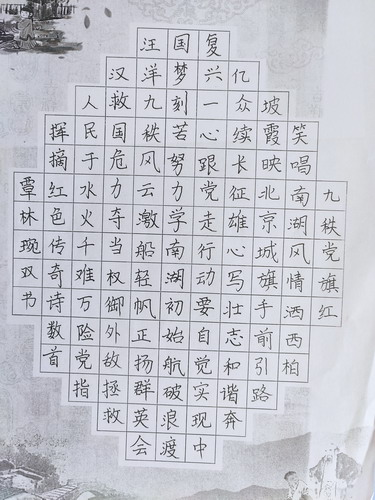 九秩党旗红
笑唱南湖风情洒西柏
坡霞映北京城旗手前引路
亿众续长征雄心写壮志和谐奔
复兴一心跟党走行动要自觉实现中
国梦刻苦努力学南湖初始航破浪渡
汪洋九秩风云激船轻帆正扬群英会
汉救国危力夺当权御外敌拯救
人民于水火千难万险党指
挥摘红色传奇诗数首
覃林琬双书